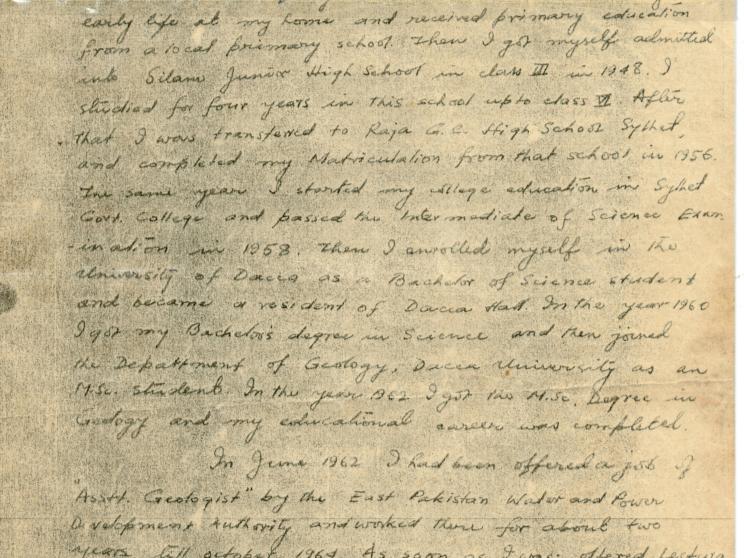 early life at my home and received primary education
from a local primary school. Then I got myself admitted
into Silam Junior High School in class III in 1948. I
studied for four years in this school upto class VI. After
that I was transferred to Raja G.C. High School Sylhet,
and completed my Matriculation from that school in 1956.
The same year I started my college education in Sylhet
Govt. College and passed the Intermediate of Science Exam
-ination in 1958. Then I enrolled myself in the
University of Dacca as a Bachelor of Science student
and became a resident of Dacca Hall. In the year 1960
I got my Bachelor's degree in Science and then joined
the Department of Geology, Dacca University as an
M.Sc. student. In the year 1962 I got the M.Sc. Degree in
Geology and my educational career was completed.
In June 1962 I had been offered a job of
"Asstt. Geologist" by the East Pakistan Water and Power
Development Authority and worked there for about two
years till october 1964. As soon as I was offered